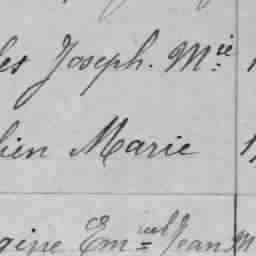 les Joseph. Mie
bien Marie
gine Emuel Jean M